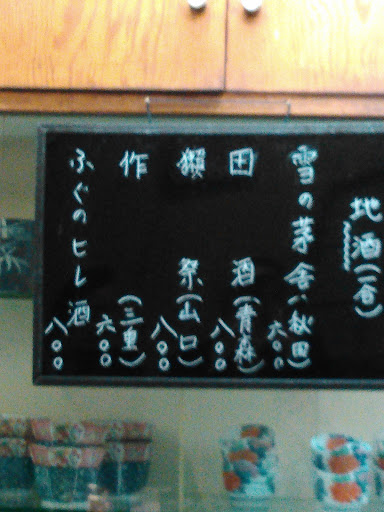 地酒(一合)
雪の茅舎(秋田)
六〇〇
田酒(青森)
八〇〇
獺祭(山口)
八〇〇
作(三重)
六〇〇
ふぐのヒレ酒
八〇〇